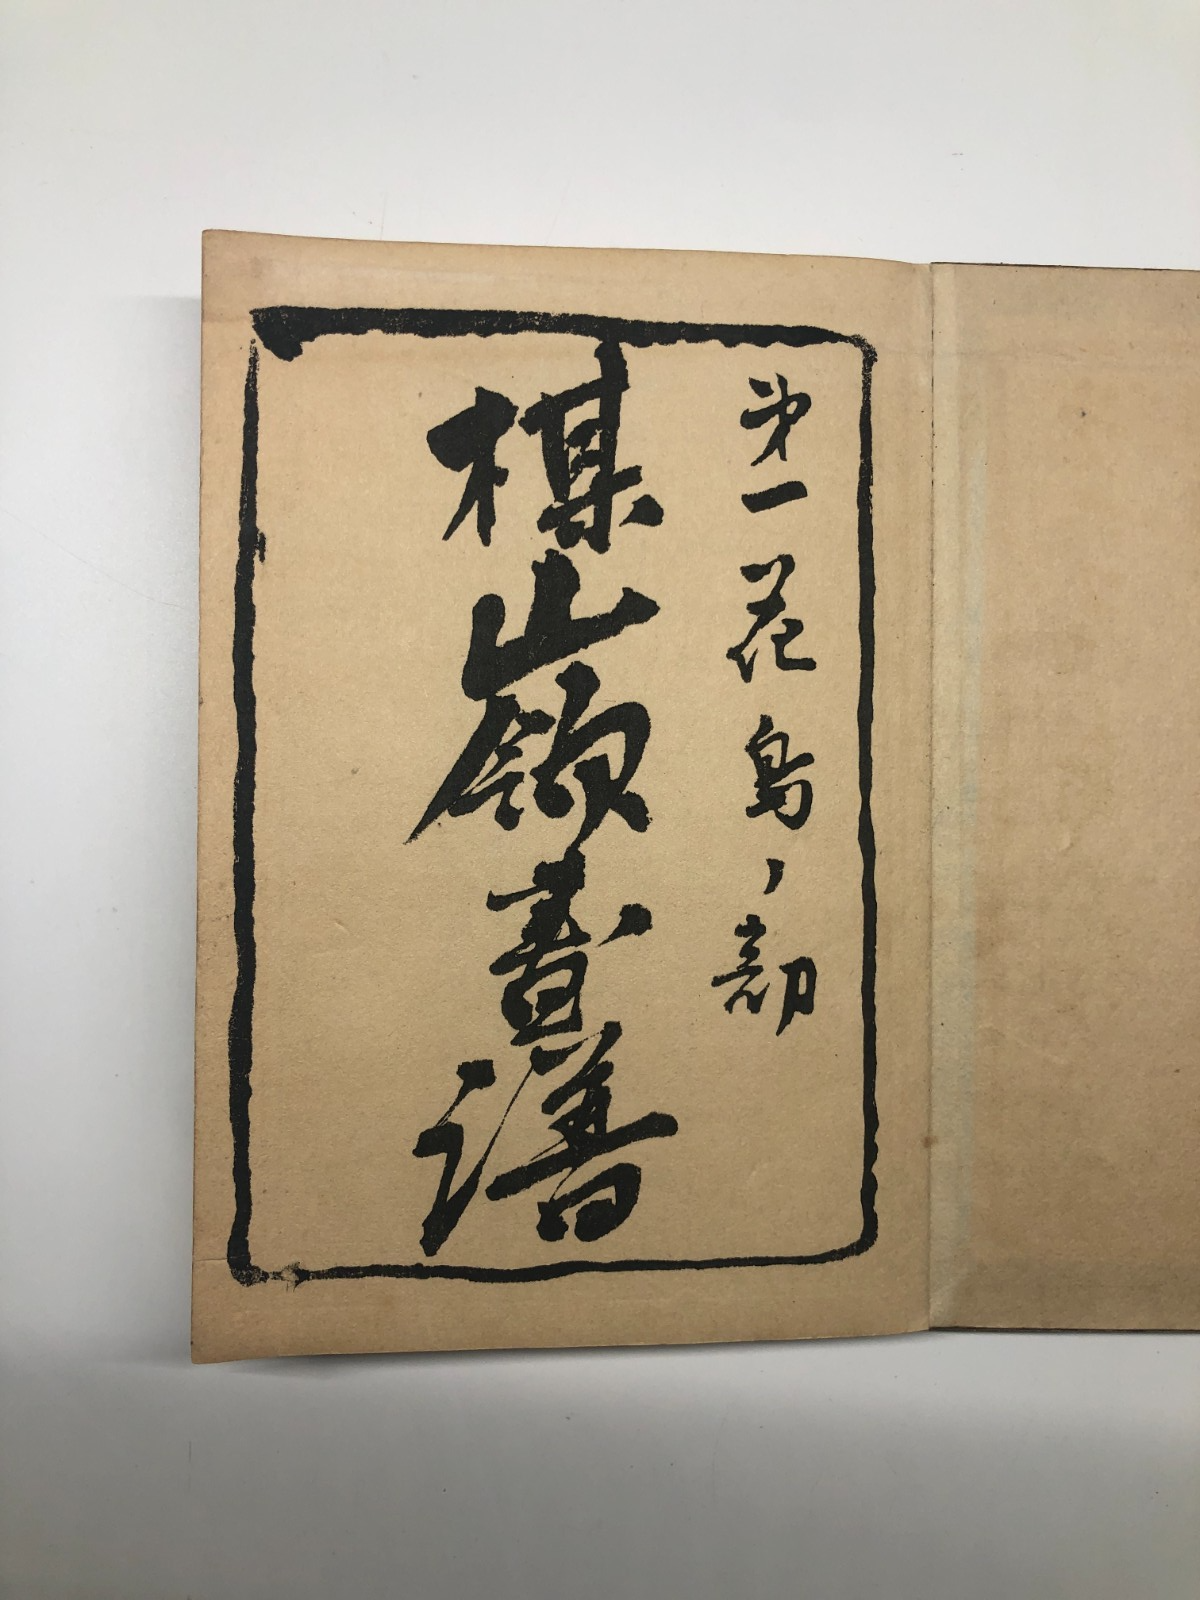 第一花鳥ノ部
楳嶺画譜